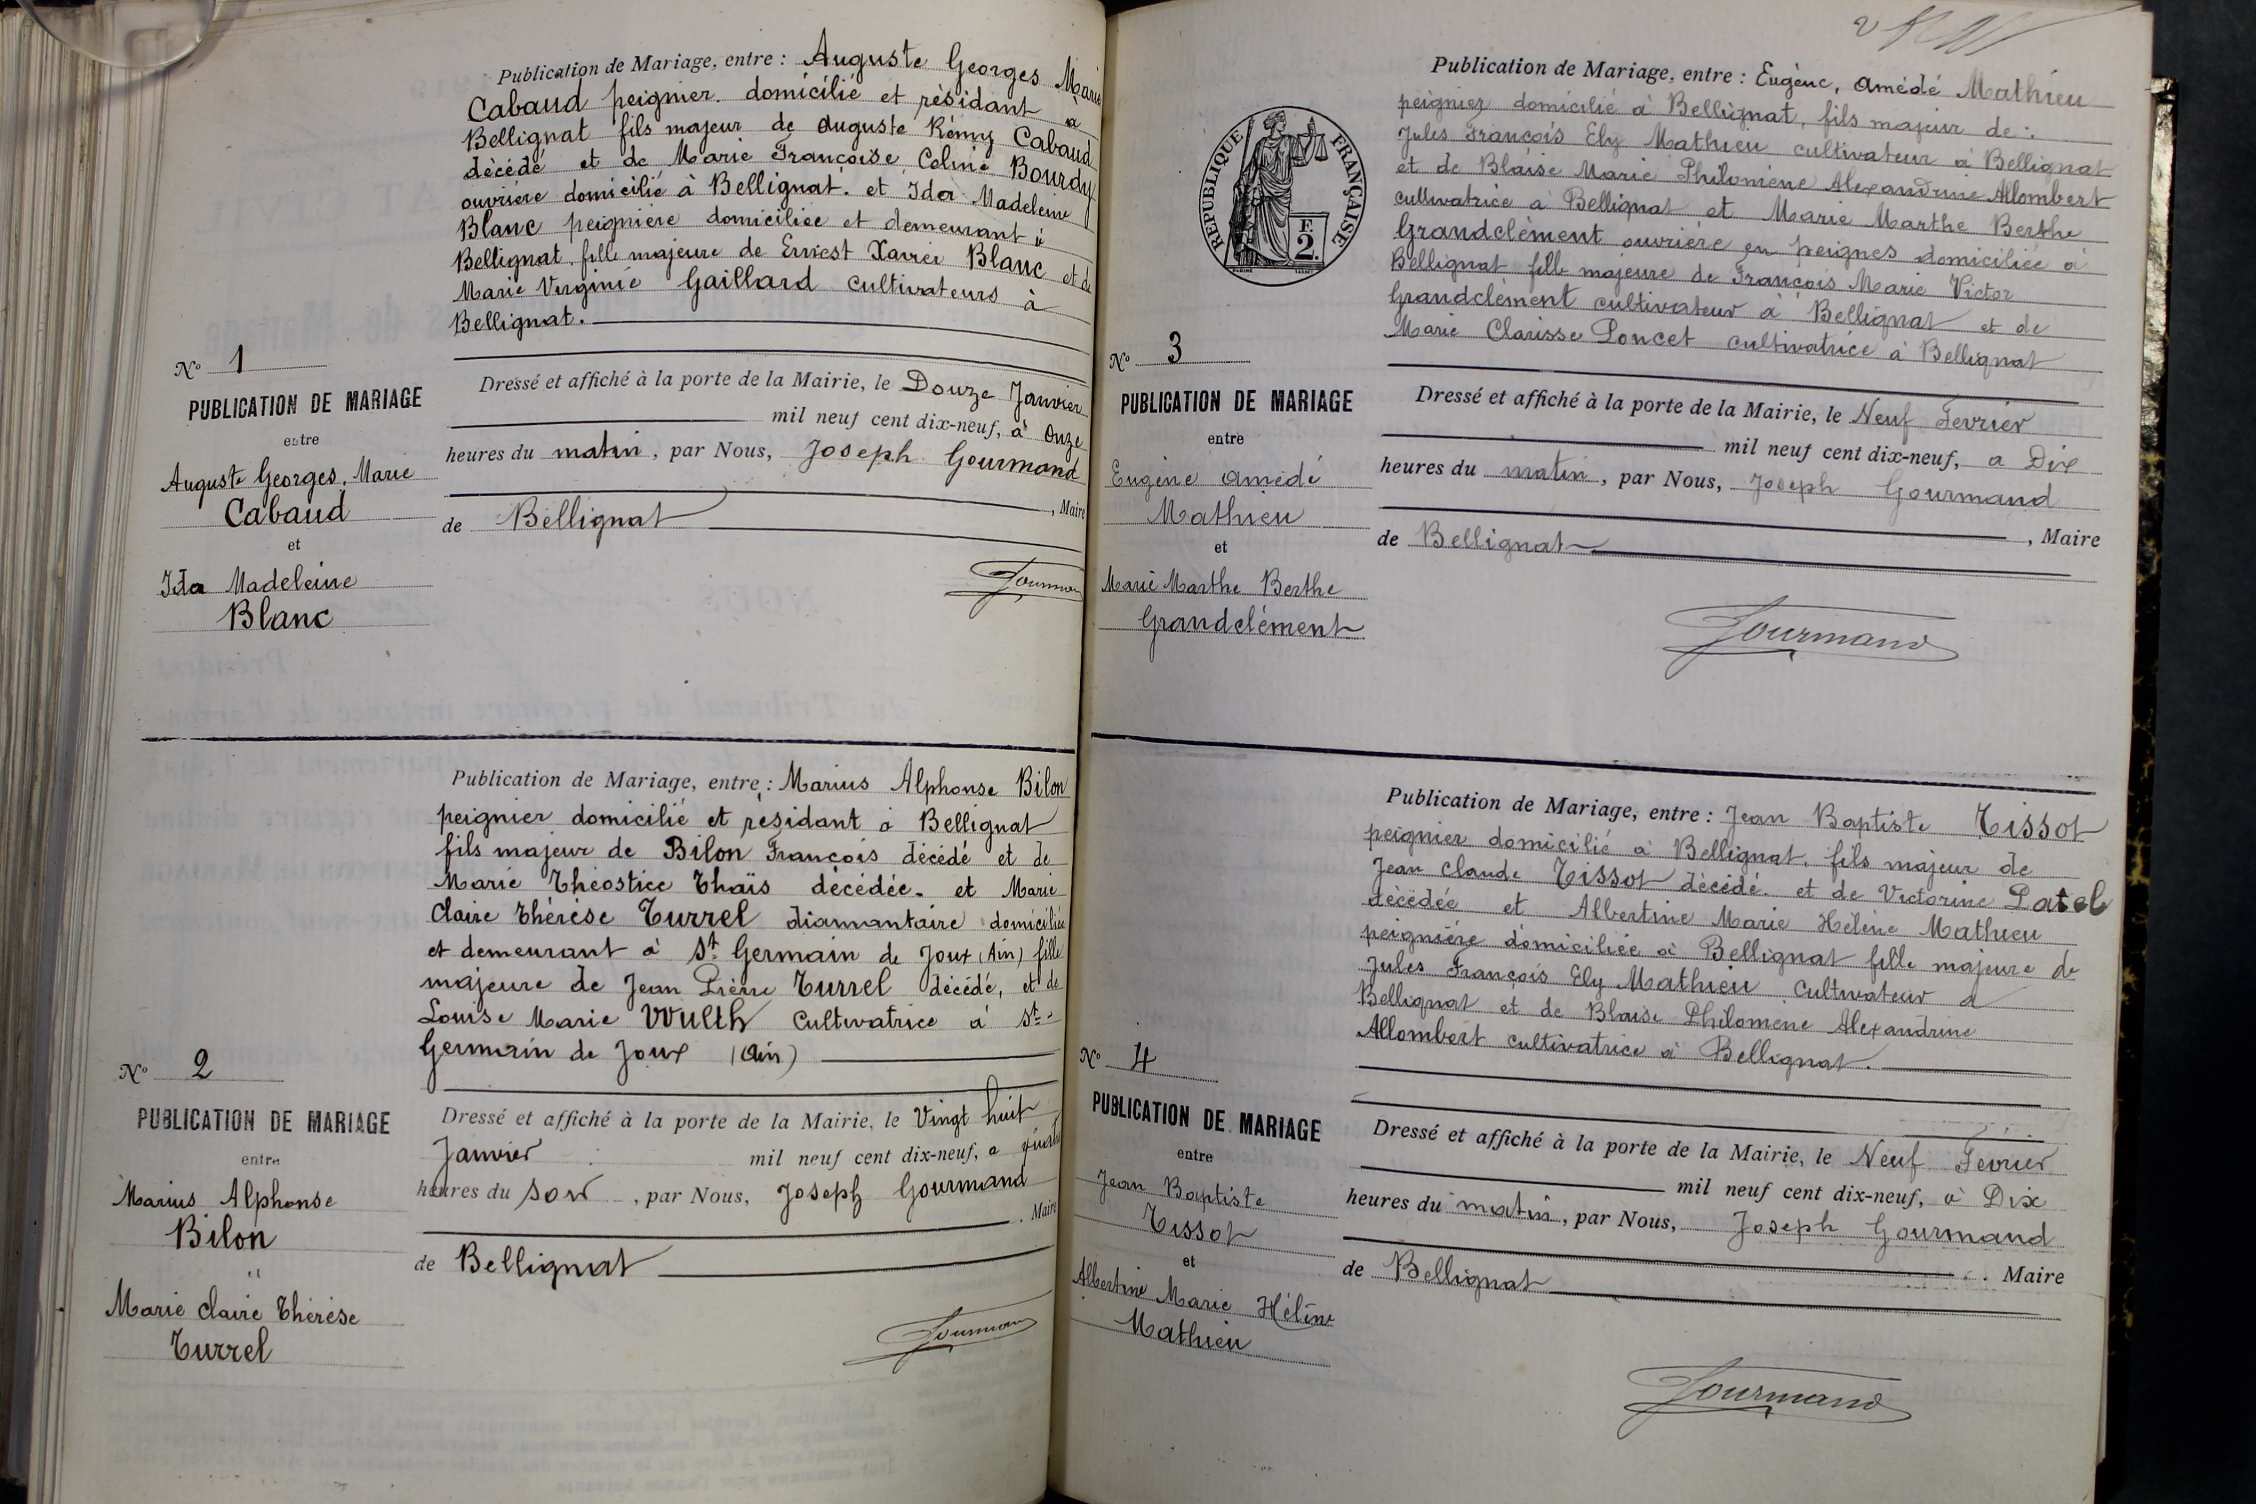 Publication de Mariage, entre : Auguste Georges Marie
Cabaud peignier domicilié et résidant à
Bellignat fils majeur de Auguste Rémy Cabaud
décédé et de Marie Françoise Celine Bourdy
ouvrière domicilié à Bellignat. et Ida Madeleine
Blanc peignière domiciliée et demeurant à
Bellignat fille majeure de Ernest Xavier Blanc et de
Marie Virginie Gaillard cultivateurs à
Bellignat.
Nº 1
PUBLICATION DE MARIAGE
entre
Auguste Georges, Marie
Cabaud
et
Ida Madeleine
Blanc
Dressé et affiché à la porte de la Mairie, le Douze Janvier
mil neuf cent dix-neuf, à Onze
heures du matin, par Nous, Joseph Gourmand
, Maire
de Bellignat
Gourmand
Publication de Mariage, entre : Marius Alphonse Bilon
peignier domicilié et résidant à Bellignat
fils majeur de Bilon François décédé et de
Marie Théostice Thaïs décédée. et Marie
Claire Thérèse Turrel diamantaire domiciliée
et demeurant à St Germain de Joux (Ain) fille
majeure de Jean Pierre Turrel décédé, et de
Louise Marie Vuulth cultivatrice à St
Germain de Joux (Ain)
Nº 2
PUBLICATION DE MARIAGE
entre
Marius Alphonse
Bilon
et
Marie Claire Thérèse
Turrel
Dressé et affiché à la porte de la Mairie, le Vingt huit
Janvier mil neuf cent dix-neuf, a
heures du soir, par Nous, Joseph Gourmand
, Maire
de Bellignat
Gourmand
2
Publication de Mariage, entre : Eugène, Amédé Mathieu
peignier domicilié à Bellignat, fils majeur de :
Jules François Ely Mathieu cultivateur à Bellignat
et de Blaise Marie Philomène Alexandrine Allombert
cultivatrice à Bellignat et Marie Marthe Berthe
Grandclément ouvrière en peignes domiciliée à
Bellignat fille majeure de François Marie Victor
Grandclément cultivateur à Bellignat et de
Marie Clarisse Poncet cultivatrice à Bellignat
RÉPUBLIQUE FRANÇAISE
F.
2.
Nº 3
PUBLICATION DE MARIAGE
entre
Eugène Amédé
Mathieu
et
Marie Marthe Berthe
Grandclément
Dressé et affiché à la porte de la Mairie, le Neuf Fevrier
mil neuf cent dix-neuf, a Dix
heures du matin, par Nous, Joseph Gourmand
, Maire
de Bellignat
Gourmand
Publication de Mariage, entre : Jean Baptiste Tissot
peignier domicilié à Bellignat, fils majeur de
Jean Claude Tissot décédé. et de Victorine Patel
décédée et Albertine Marie Hélène Mathieu
peignière domiciliée à Bellignat fille majeure de
Jules François Ely Mathieu Cultivateur à
Bellignat et de Blaise Philomène Alexandrine
Allombert cultivatrice à Bellignat.
Nº 4
PUBLICATION DE MARIAGE
entre
Jean Baptiste
Tissot
et
Albertine Marie Hélène
Mathieu
Dressé et affiché à la porte de la Mairie, le Neuf Fevrier
mil neuf cent dix-neuf, à Dix
heures du matin, par Nous, Joseph Gourmand
, Maire
de Bellignat
Gourmand